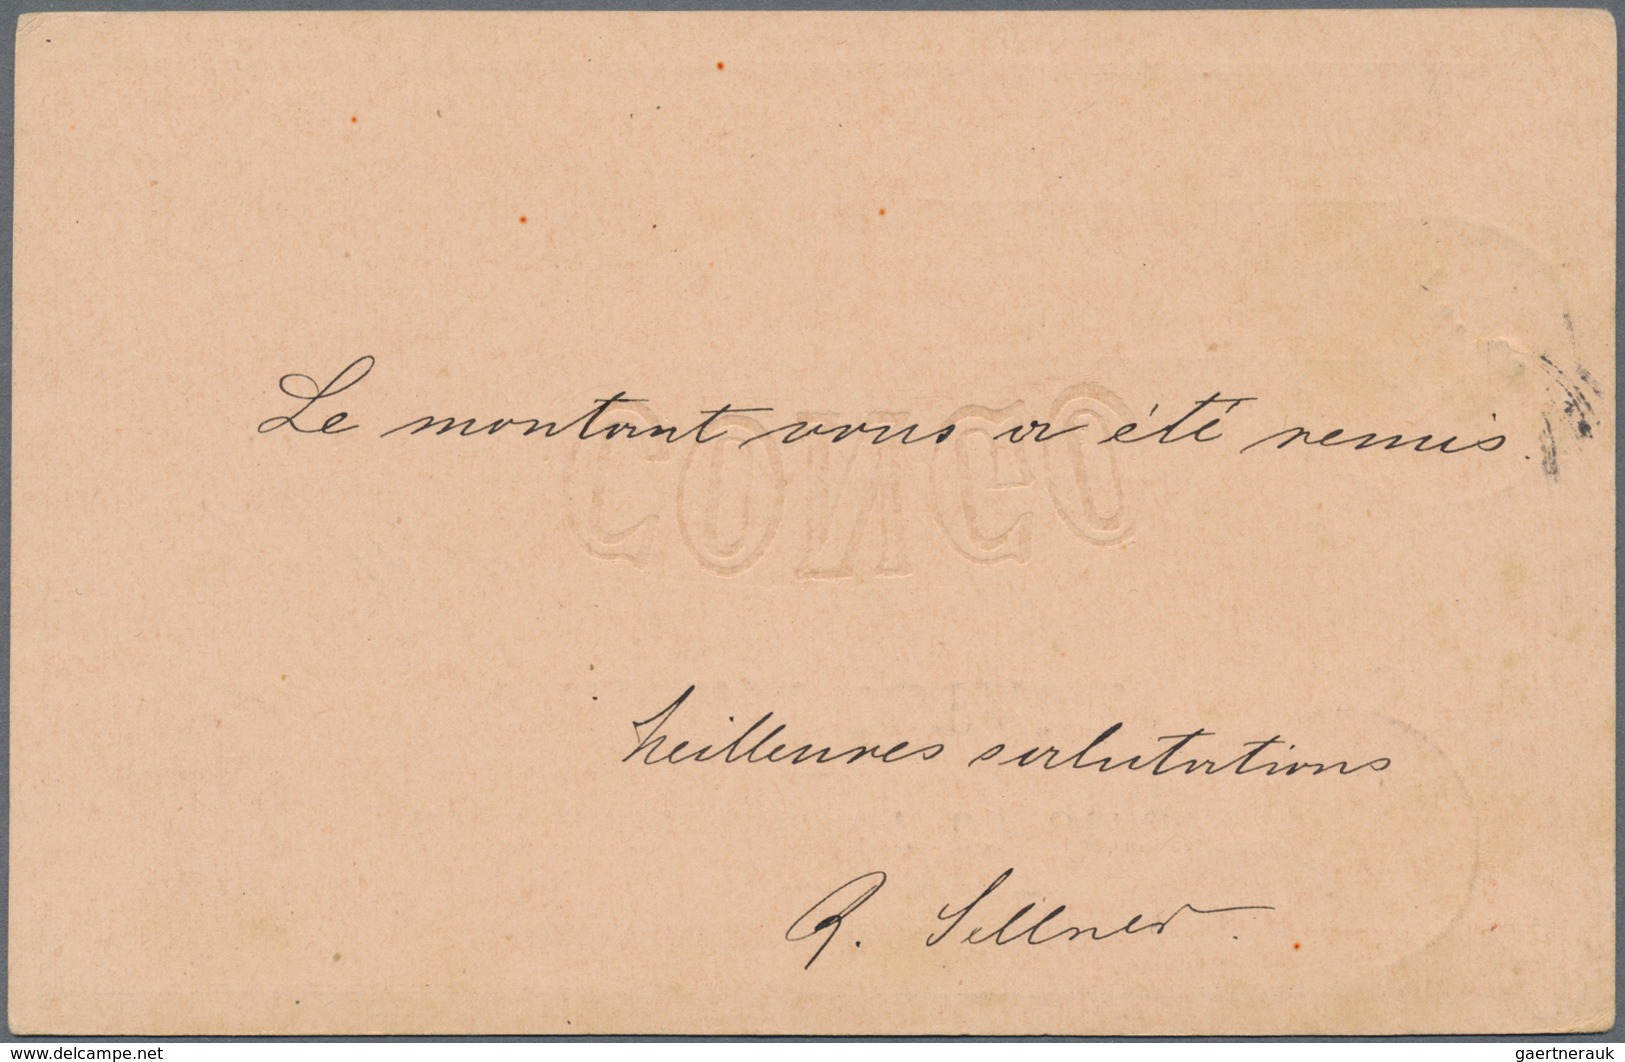 Le montant vous a été remis.
CONGO
Meilleures salutations
R. Sellner.
www.delcampe.net
gaertnerauk